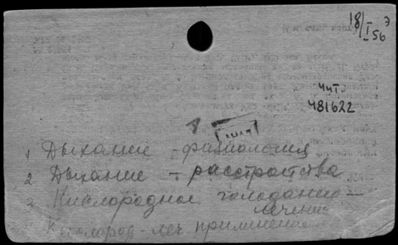 18/I 56 Э
Чит.
481622
1 Дыхание - физиология
2 Дыхание - расстройства
3 Кислородное голодание -
лечение
Кислород - леч. применение